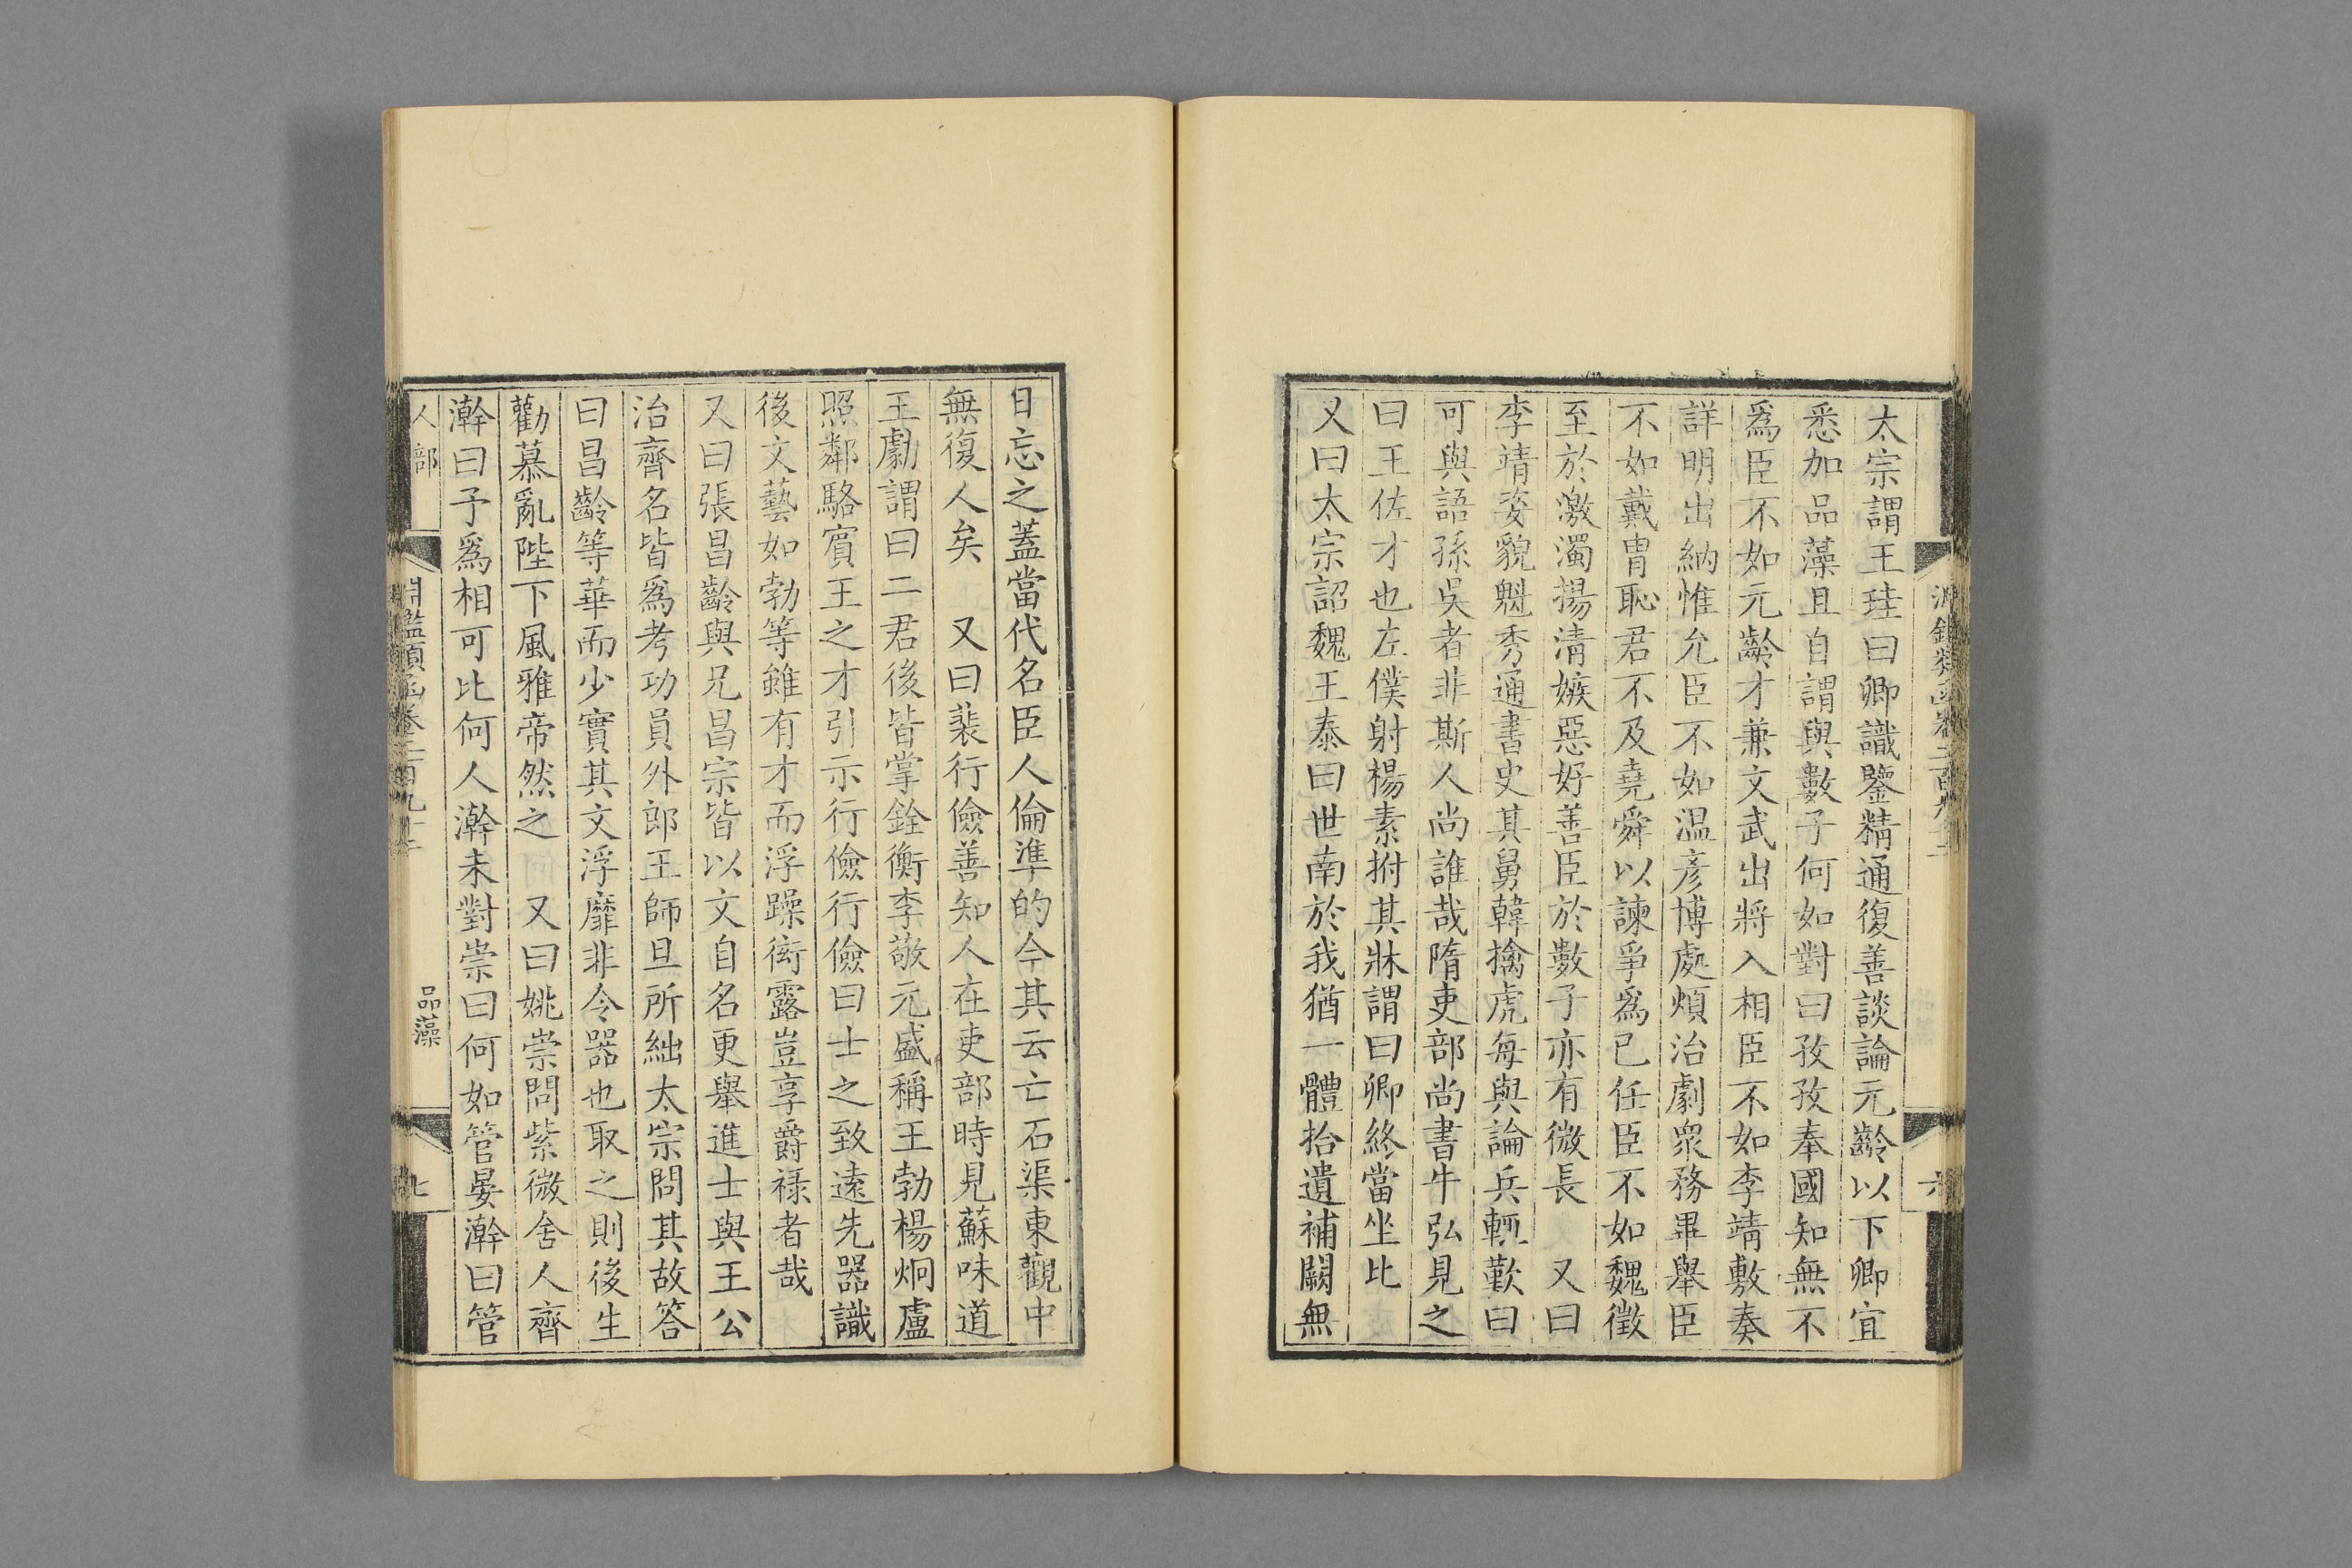 太宗謂王珪曰卿識鑒精通復善談論元齡以下卿宜
悉加品藻且自謂與數子何如對曰孜孜奉國知無不
爲臣不如元齡才兼文武出將入相臣不如李靖敷奏
詳明出納惟允臣不如温彥博處煩治劇衆務畢舉臣
不如戴胄恥君不及堯舜以諫爭爲已任臣不如魏徵
至於激濁揚淸嫉惡好善臣於數子亦有微長　又曰
李靖姿貌魁秀通書史其舅韓擒虎每與論兵輒歎曰
可與語孫吳者非斯人尚誰哉隋吏部尚書牛弘見之
曰王佐才也左僕射楊素拊其牀謂曰卿終當坐比
又曰太宗詔魏王泰曰世南於我猶一體拾遺補闕無
日忘之蓋當代名臣人倫準的今其云亡石渠東觀中
無復人矣　又曰裴行儉善知人在吏部時見蘇味道
王勮謂曰二君後皆掌銓衡李敬元盛稱王勃楊炯盧
照鄰駱賓王之才引示行儉行儉曰士之致遠先器識
後文藝如勃等雖有才而浮躁衒露豈享爵祿者哉
又曰張昌齡與兄昌宗皆以文自名更舉進士與王公
治齊名皆爲考功員外郎王師旦所絀太宗問其故答
曰昌齡等華而少實其文浮靡非令器也取之則後生
勸慕亂陛下風雅帝然之　又曰姚崇問紫微舍人齊
澣曰予爲相可比何人澣未對崇曰何如管晏澣曰管
人部
淵鑑類函卷二百九十二
品藻
七